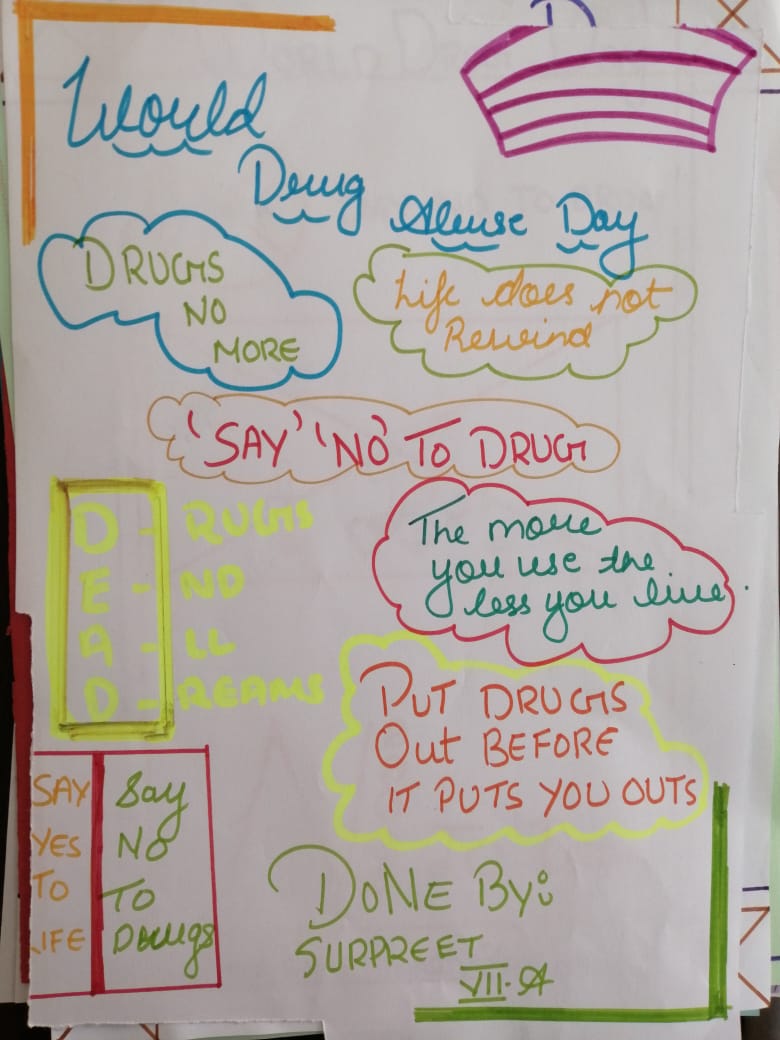 Would
Drug Abuse Day
DRUGS
NO
MORE
Life does not
Rewind
'SAY' 'NO' TO DRUG
D - RUGS
E - ND
A - LL
D - REAMS
The more
you use the
less you live.
PUT DRUGS
Out BEFORE
IT PUTS YOU OUTS
SAY
YES
TO
LIFE
Say
NO
TO
Drugs
DONE By:
SURPREET
VII-A